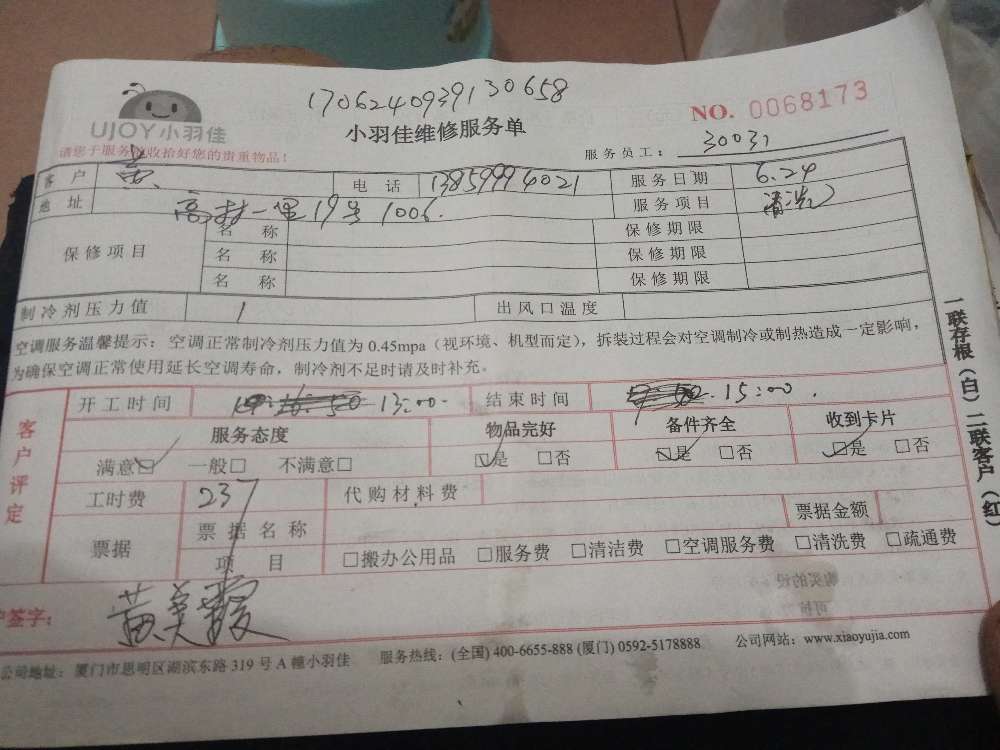 170624093913 0658
UJOY小羽佳
小羽佳维修服务单
NO. 0068173
请您于服务前收拾好您的贵重物品！
服务员工： 30031
客户 黄 电话 13859994021 服务日期 6.24
地址 高林一里19号1006. 服务项目 清洗
保修项目 名称 保修期限
名称 保修期限
名称 保修期限
制冷剂压力值 1 出风口温度
空调服务温馨提示：空调正常制冷剂压力值为 0.45mpa（视环境、机型而定），拆装过程会对空调制冷或制热造成一定影响，
为确保空调正常使用延长空调寿命，制冷剂不足时请及时补充。
客户评定
开工时间 13:00 结束时间 15:00.
服务态度 物品完好 备件齐全 收到卡片
满意☑ 一般□ 不满意□ ☑是 □否 ☑是 □否 ☑是 □否
工时费 237 代购材料费
票据 票据名称 票据金额
项目 □搬办公用品 □服务费 □清洁费 □空调服务费 □清洗费 □疏通费
户签字： 黄美霞
公司地址：厦门市思明区湖滨东路 319 号 A 幢小羽佳 服务热线：(全国) 400-6655-888 (厦门) 0592-5178888 公司网站：www.xiaoyujia.com
一联存根（白）二联客户（红）